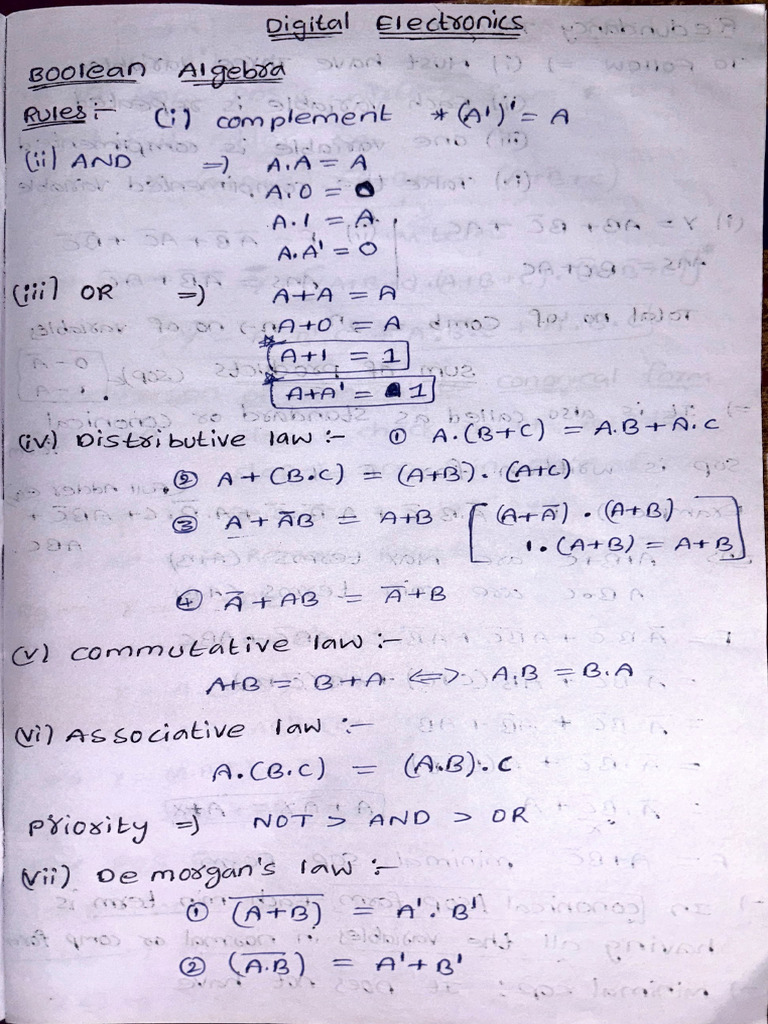 Digital Electronics
Boolean Algebra
Rules:- (i) complement * (A')' = A
(ii) AND => A.A = A
A.0 = 0
A.1 = A
A.A' = 0
(iii) OR => A+A = A
A+0 = A
* A+1 = 1
* A+A' = 1
(iv) Distributive law :- ① A.(B+C) = A.B+A.C
② A+(B.C) = (A+B).(A+C)
③ A+A̅B = A+B [(A+A̅).(A+B)
1.(A+B) = A+B]
④ A̅+AB = A̅+B
(v) commutative law :-
A+B = B+A <=> A.B = B.A
(vi) Associative law :-
A.(B.C) = (A.B).C
Priority => NOT > AND > OR
(vii) De morgan's law :-
① (A̅+̅B̅) = A'.B'
② (A̅.̅B̅) = A'+B'